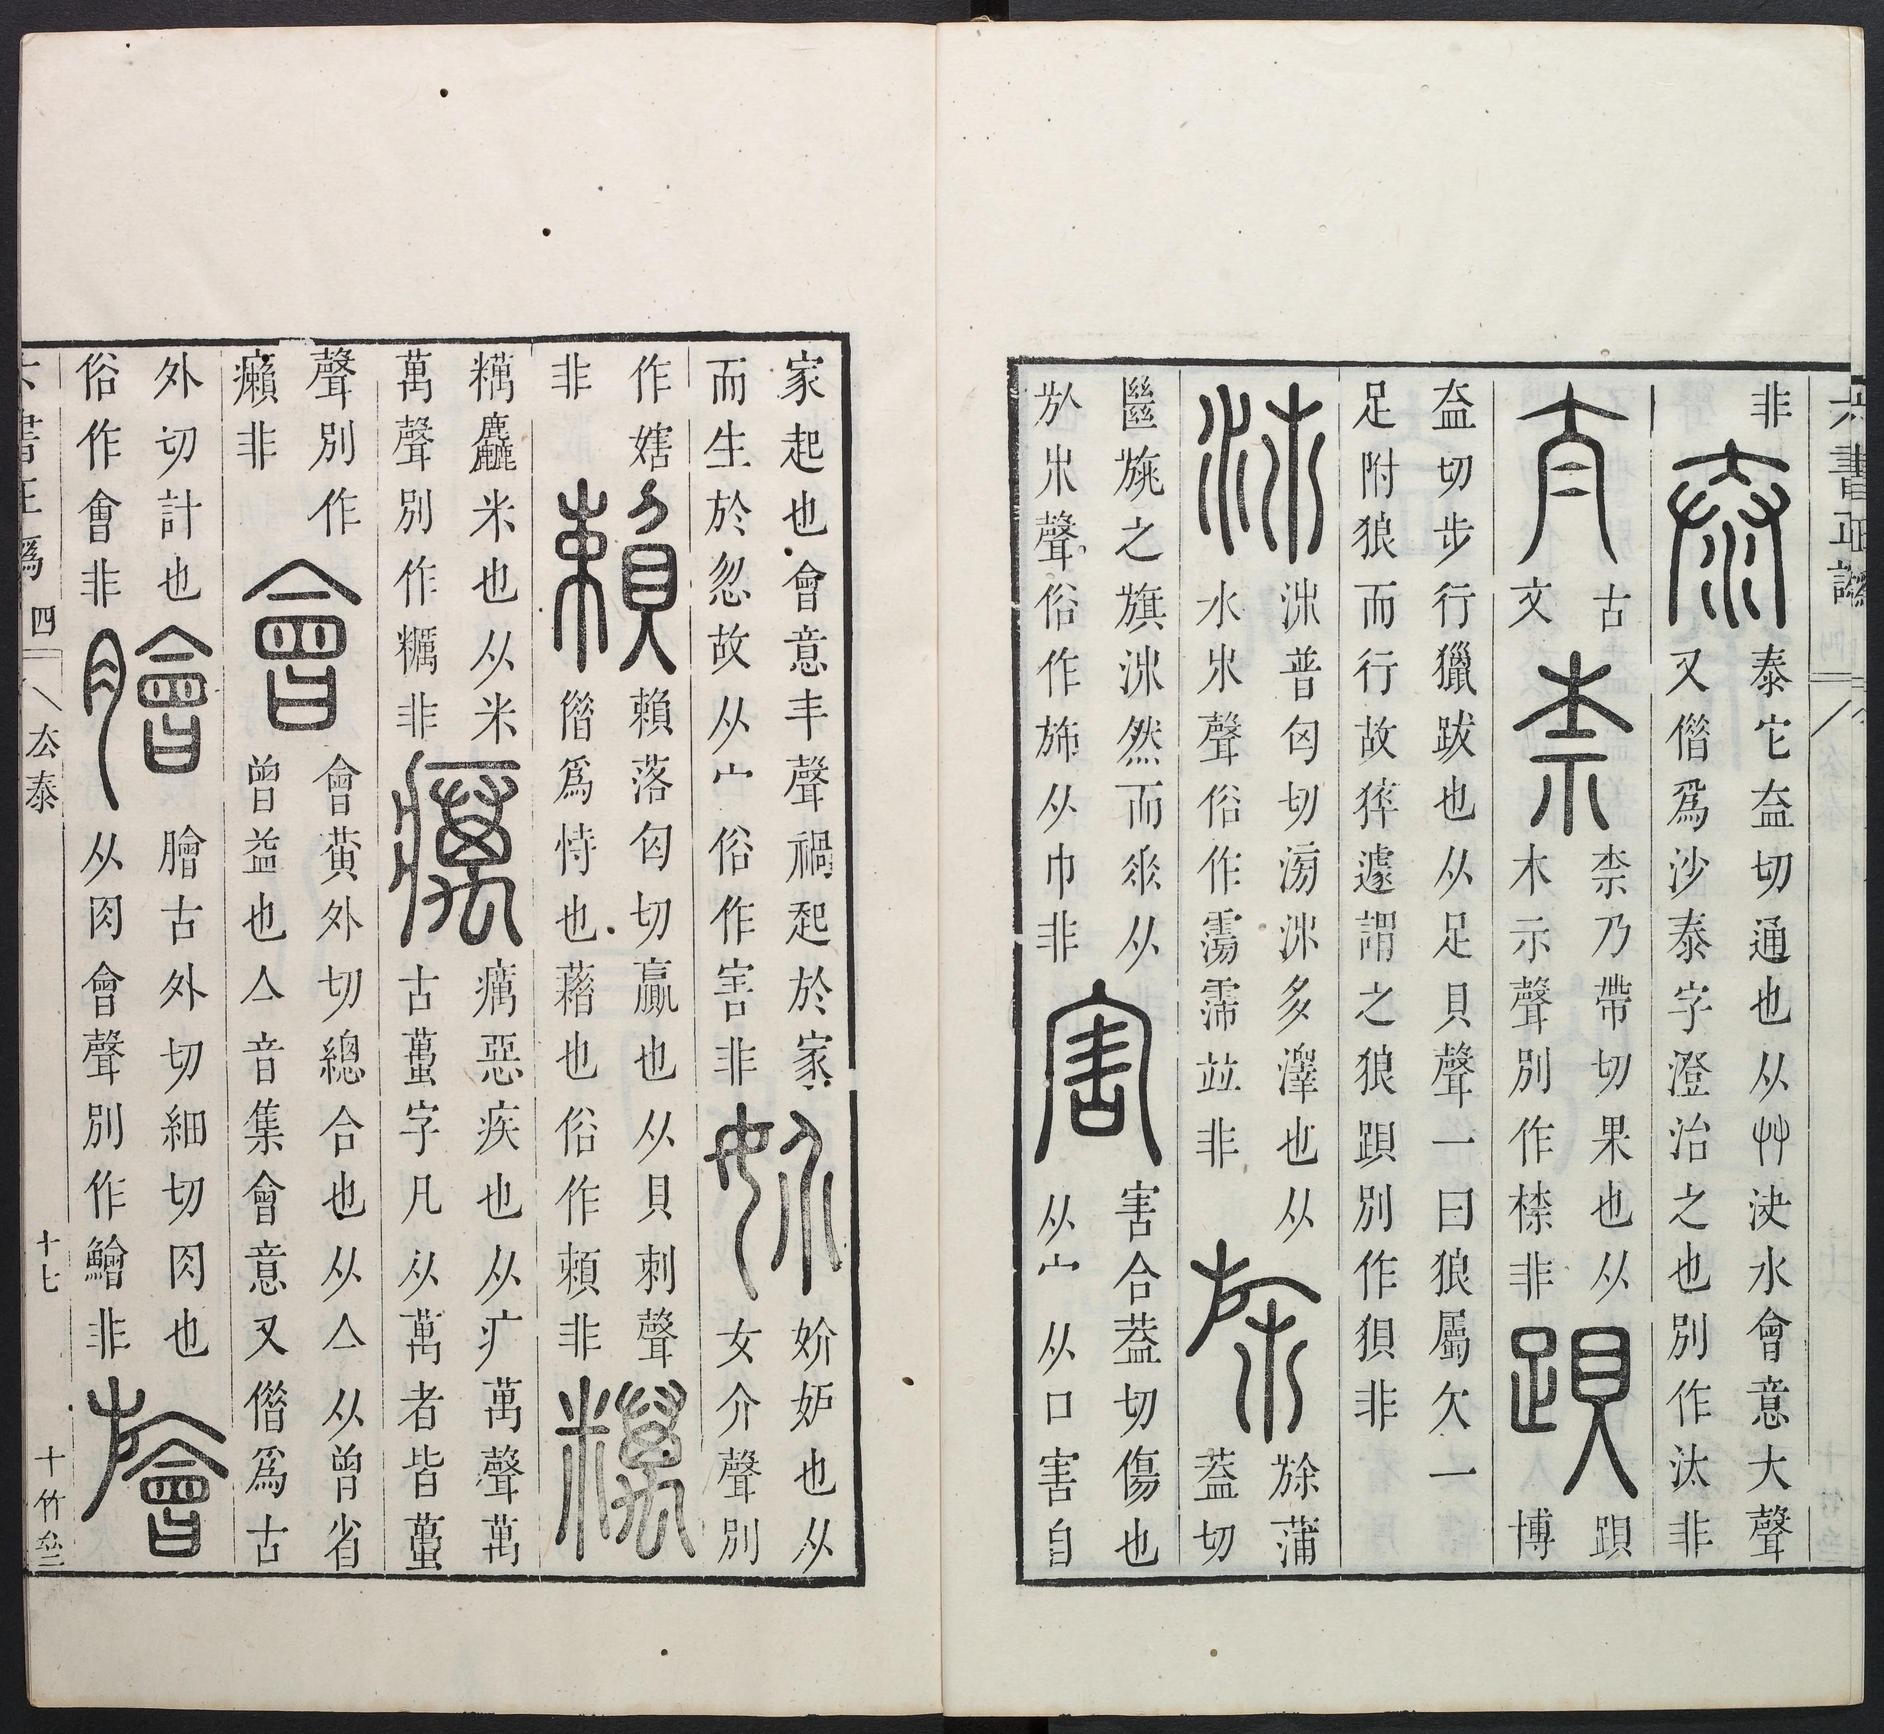 六書正譌
非
泰它葢切通也从艸決水會意大聲
又偺爲沙泰字澄治之也別作汰非
古
文
柰乃帶切果也从
木示聲別作㮈非
跟博
葢切步行獵跋也从足貝聲一曰狼屬欠一
足附狼而行故猝遽謂之狼䟺別作狽非
沛普匃切滂沛多澤也从
水巿聲俗作霶霈竝非
旆蒲
蓋切
繼旐之旗沛然而垂从
㫃巿聲俗作斾从巾非
害合蓋切傷也
从宀从口害自
家起也會意丰聲禍起於家
而生於忽故从宀俗作害非
妎妒也从
女介聲別
作㛫
非
賴落匃切贏也从貝剌聲
偺爲恃也藉也俗作頼非
糲麤米也从米萬聲
萬聲別作糲非
癘惡疾也从疒萬聲萬
古蠆字凡从萬者皆蠆
聲別作
癩非
會黃外切總合也从亼从曾省
曾益也亼音集會意又偺爲古
外切計也
俗作會非
膾古外切細切肉也
从肉會聲別作鱠非
六書正譌
四
厺泰
十七
十竹齋